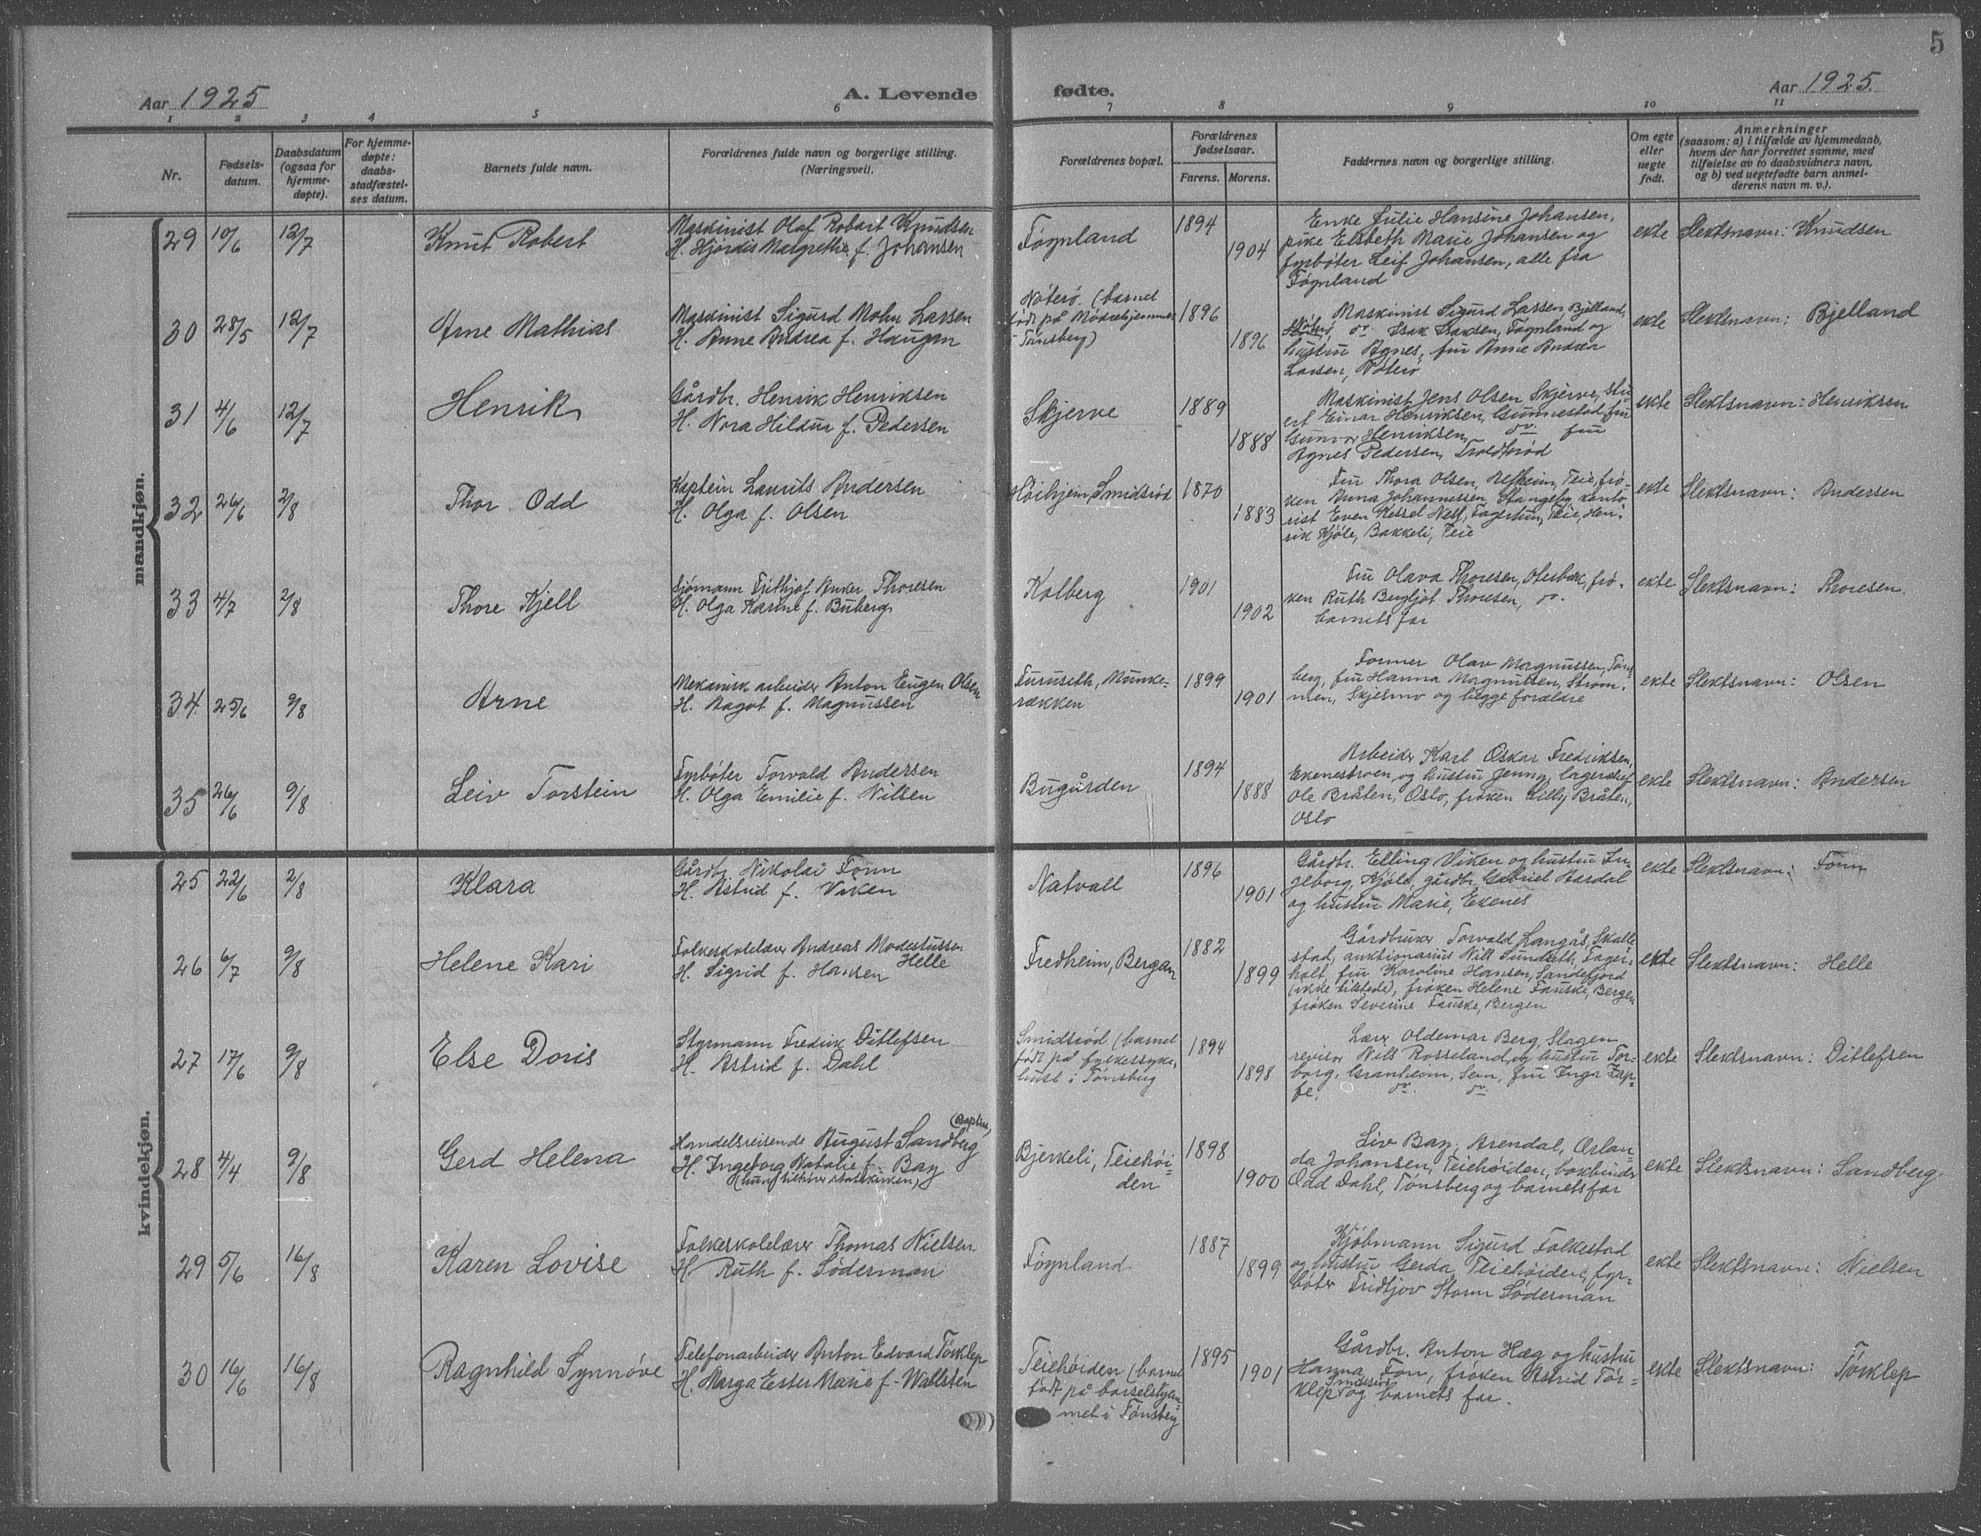 5
Aar 1925
A. Levende fødte.
Aar 1925.
1 2 3 4 5 6 7 8 9 10 11
Nr.
Fødsels-
datum.
Daabsdatum
(ogsaa for
hjemme-
døpte).
For hjemme-
døpte:
daabs-
stadfæstel-
ses datum.
Barnets fulde navn.
Forældrenes fulde navn og borgerlige stilling.
(Næringsvei).
Forældrenes bopæl.
Forældrenes
fødselsaar.
Farens. Morens.
Faddernes navn og borgerlige stilling.
Om egte
eller
uegte
født.
Anmerkninger
(saasom: a) i tilfælde av hjemmedaab,
hvem der har forrettet samme, med
tilføielse av to daabsvidners navn,
og b) ved uegtefødte barn anmel-
derens navn m. v.).
mandkjøn.
29 10/6 12/7 Knut Robert
Maskinist Olaf Robert Knudsen
H. Hjordis Margrethe f. Johansen
Føgnland 1894 1904
Enke Julie Hansine Johansen,
pike Elsbeth Marie Johansen og
fyrbøter Leif Johansen, alle fra
Føgnland
ekte Slektsnavn: Knudsen
30 28/5 12/7 Arne Mathias
Maskinist Sigurd Mohn Larsen
H. Anne Andrea f. Haugen
Nøterø. (barnet
født på Mødrehjemmet
i Tønsberg)
1896 1896
Maskinist Sigurd Larsen Bjelland,
Nøterø, do. Isak Isaksen, Føgnland og
hustru Agnes, fru Anne Andrea
Larsen, Nøterø
ekte Slektsnavn: Bjelland
31 4/6 12/7 Henrik
Gårdbr. Henrik Henriksen
H. Nora Hildur f. Pedersen
Skjerve 1889 1888
Maskinist Jens Olsen Skjerve, stu-
ert Einar Henriksen, Gunnestad, fru
Gunvor Henriksen, do. fru
Agnes Pedersen, Troldbrød
ekte Slektsnavn: Henriksen
32 26/6 2/8 Thor Odd
Kaptein Laurits Andersen
H. Olga f. Olsen
Høihjem, Smidsrød 1870 1883
Fru Thora Olsen, Alfheim, Teie, frø-
ken Anna Johannessen, Stangeby, konto-
rist Even Kessel Ness, Fagertun, Teie, Hen-
rik Kjøle, Bakkeli, Teie
ekte Slektsnavn: Andersen
33 4/7 2/8 Thore Kjell
Sjømann Frithjof Anker Thoresen
H. Olga Karine f. Buberg
Kolberg 1901 1902
Fru Olava Thoresen, Olesbæk, frø-
ken Ruth Bergljot Thoresen, do.
barnets far
ekte Slektsnavn: Thoresen
34 25/6 9/8 Arne
Mekanisk arbeider Anton Eugen Olsen
H. Aagot f. Magnussen
Furuseth, Munke-
rækken
1899 1901
Former Olav Magnussen, Tøns-
berg, fru Hanna Magnussen, Strøm-
men, Skjelsvo og begge forældre
ekte Slektsnavn: Olsen
35 26/6 9/8 Leiv Torstein
Fyrbøter Torvald Andersen
H. Olga Emilie f. Nilsen
Bugården 1894 1888
Arbeider Karl Oskar Fredriksen,
Ekenestroen, og hustru Jenny, lagerchef
Ole Bråten, Oslo, frøken Lilly Bråten,
Oslo
ekte Slektsnavn: Andersen
kvindekjøn.
25 22/6 2/8 Klara
Gårdbr. Nikolai Fønn
H. Astrid f. Viken
Natvall 1896 1901
Gårdbr. Elling Viken og hustru In-
geborg, Kjøle, gårdbr. Gabriel Aardal
og hustru Marie, Ekenes
ekte Slektsnavn: Fønn
26 6/7 9/8 Helene Kari
Folkeskolelærer Andreas Modestussen
Helle
H. Sigrid f. Hansen
Fredheim, Bergan 1882 1899
Gårdbruker Torvald Langås, Skalle-
stad, auktionarius Nill Sundseth, Fager-
holt, fru Karoline Hansen, Sandefjord
(ikke tilstede), frøken Helene Fauske, Bergen
frøken Severine Fauske, Bergen
ekte Slektsnavn: Helle
27 17/6 9/8 Else Doris
Styrmann Fredrik Ditlefsen
H. Astrid f. Dahl
Smidsrød (barnet
født på fylkessyke-
huset i Tønsberg
1894 1898
Lærer Oldemar Berg, Slagen
revisor Nils Rosseland og hustru Tor-
borg, Granheim, Sem, fru Inga Zap-
fe, do. do.
ekte Slektsnavn: Ditlefsen
28 4/4 9/8 Gerd Helena
(Baptist)
Handelsreisende August Sandberg
H. Ingeborg Natalie f. Bay
(hun tilhører statskirken)
Bjerkeli, Teiehøi-
den
1898 1900
Liv Bay, Arendal, Orlan-
da Johansen, Teiehøiden, bokbinder
Odd Dahl, Tønsberg og barnets far
ekte Slektsnavn: Sandberg
29 5/6 16/8 Karen Lovise
Folkeskolelærer Thomas Nielsen
H. Ruth f. Søderman
Føgnland 1887 1899
Kjøbmann Sigurd Folkestad
og hustru Gerda, Teiehøiden, fyr-
bøter Fridtjov Storm Søderman
ekte Slektsnavn: Nielsen
30 16/6 16/8 Ragnhild Synnøve
Telefonarbeider Anton Edvard Tørklep
H. Marga Ester Marie f. Wallsten
Teiehøiden (barnet
født på barselshjem-
met i Tønsberg
1895 1901
Gårdbr. Anton Hæg og hustru
Hanna, Fon, frøken Astrid Tør-
klep Smidsrød og barnets far.
ekte Slektsnavn: Tørklep